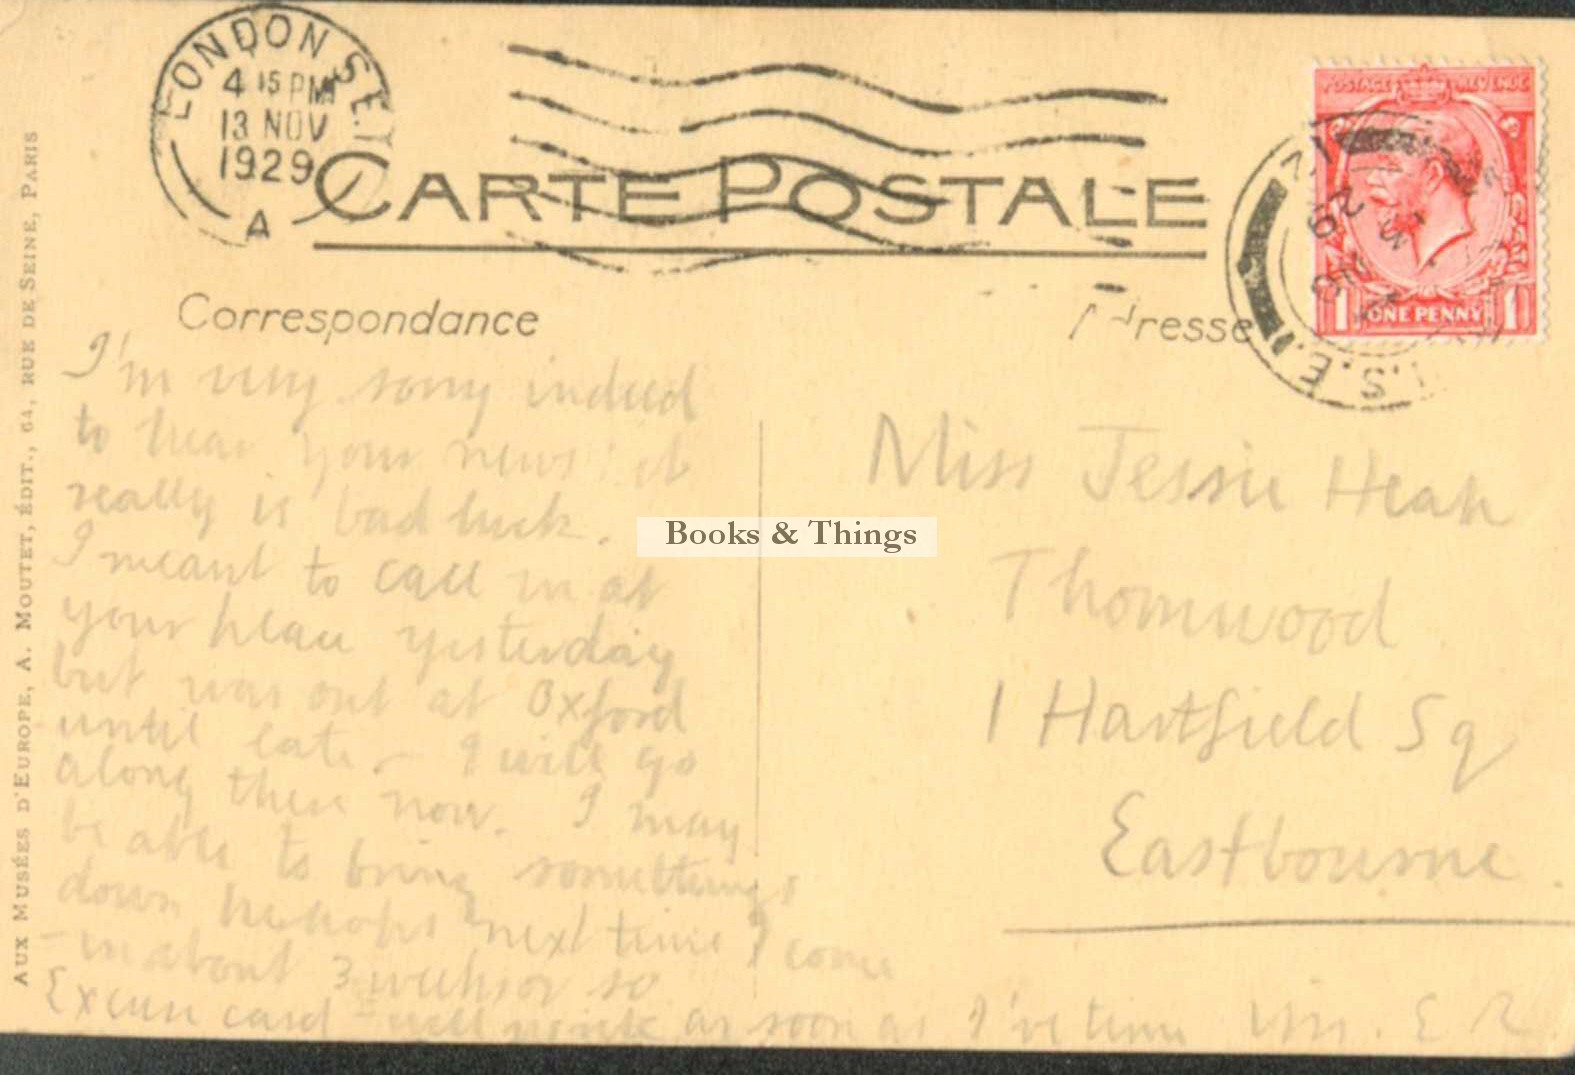 LONDON S.E.1
4 15 PM
13 NOV
1929
A
CARTE POSTALE
POSTAGE REVENUE
ONE PENNY
1 1
S.E.1
29
AUX MUSÉES D'EUROPE, A. MOUTET, ÉDIT., 64, RUE DE SEINE, PARIS
Correspondance
I'm very sorry indeed
to hear your news: it
really is bad luck.
I meant to call in at
your place yesterday
but was out at Oxford
until late – I will go
along there now. I may
be able to bring somethings
down perhaps next time I come
– in about 3 weeks or so
Excuse card – will write as soon as I've time E R
Adresse
Miss Jessie Heath
Thornwood
1 Hartfield Sq
Eastbourne.
Books & Things